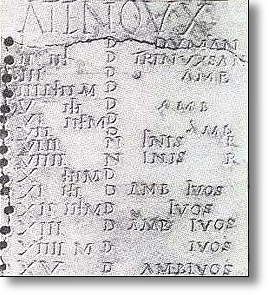 ATENOVX
D DVMAN
D TRINVXSAN
D AMB
IIII M D
V D AMB
VI M D
VII D AMB
VIII N INIS R
VIIII N INIS R
X M D
XI D AMB IVOS
XII M D IVOS
XIII D AMB IVOS
XIIII M D IVOS
XV D AMB IVOS